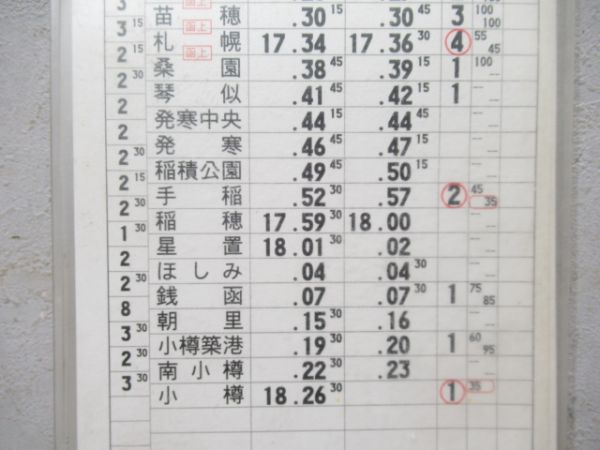 3 苗穂 .30 15 .30 45 3 100 100
3 15 函上 函上
札幌 17.34 17.36 30 4 55 45
2 15 函上
桑園 .38 45 .39 15 1 100
2 30
琴似 .41 45 .42 15 1
2
発寒中央 .44 15 .44 45
2
発寒 .46 45 .47 15
2 30
稲積公園 .49 45 .50 15
2 15
手稲 .52 30 .57 2 45 35
2 30
稲穂 17.59 30 18.00
1 30
星置 18.01 30 .02
2
ほしみ .04 .04 30
2 30
銭函 .07 .07 30 1 75 85
8
朝里 .15 30 .16
3 30
小樽築港 .19 30 .20 1 60 95
2 30
南小樽 .22 30 .23
3 30
小樽 18.26 30 1 35